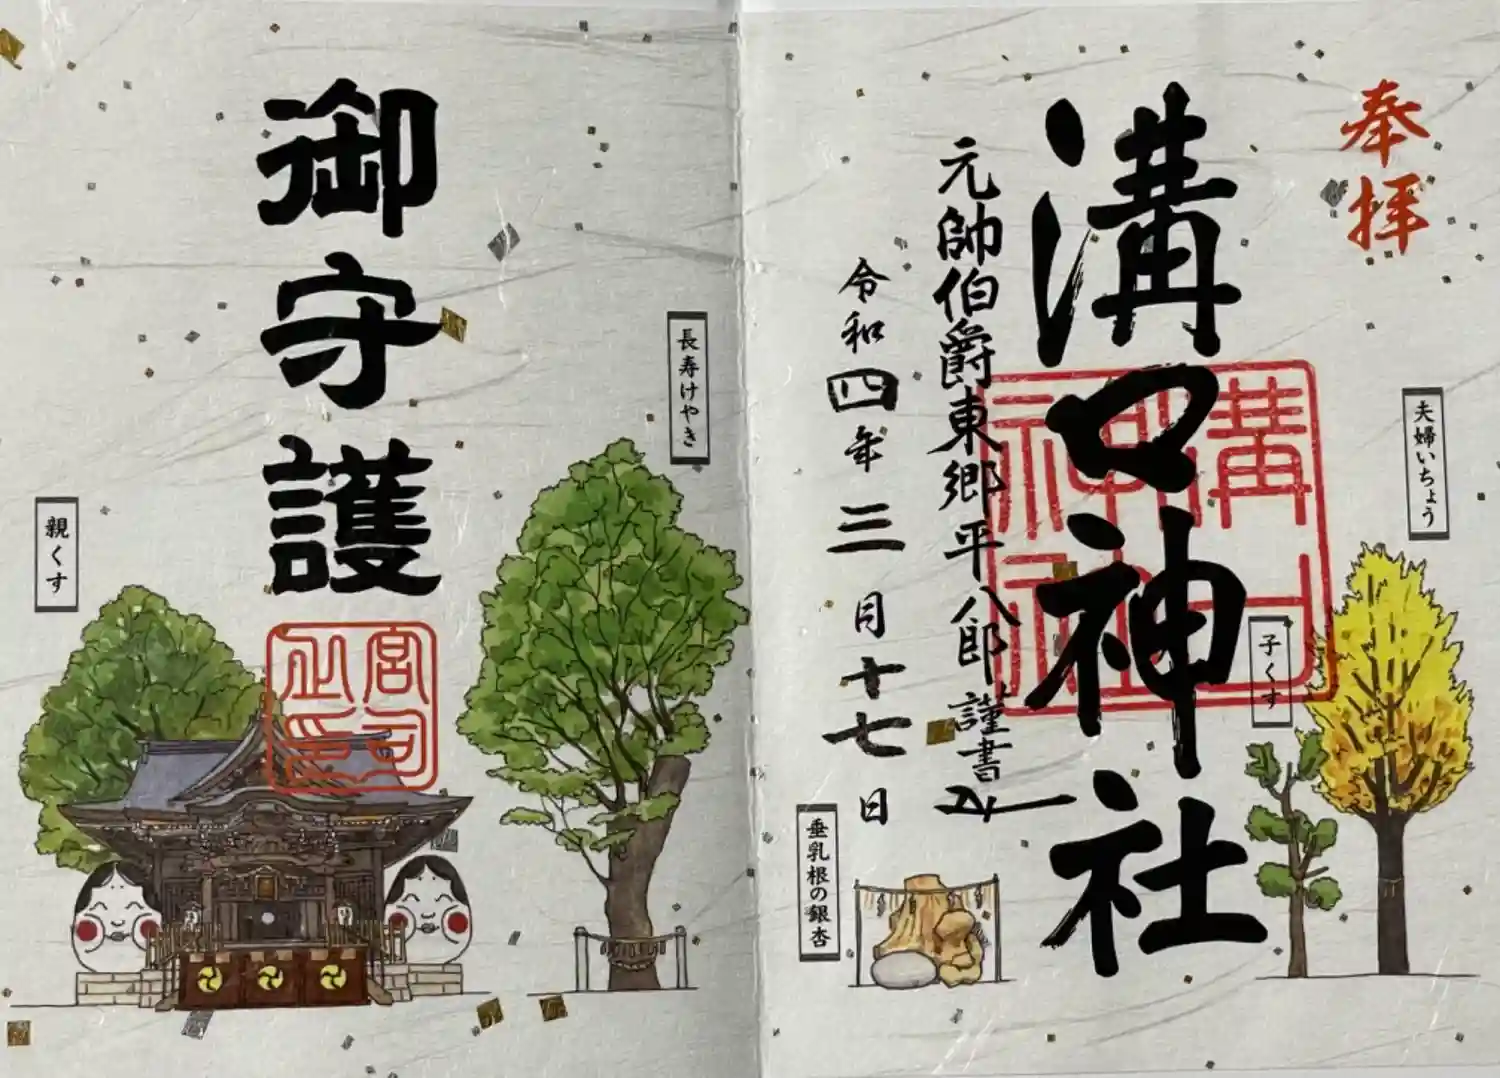 奉拝
夫婦いちょう
子くす
溝口神社
溝口
神社
元帥伯爵東郷平八郎謹書
令和四年三月十七日
垂乳根の銀杏
長寿けやき
御守護
宮司
之印
親くす